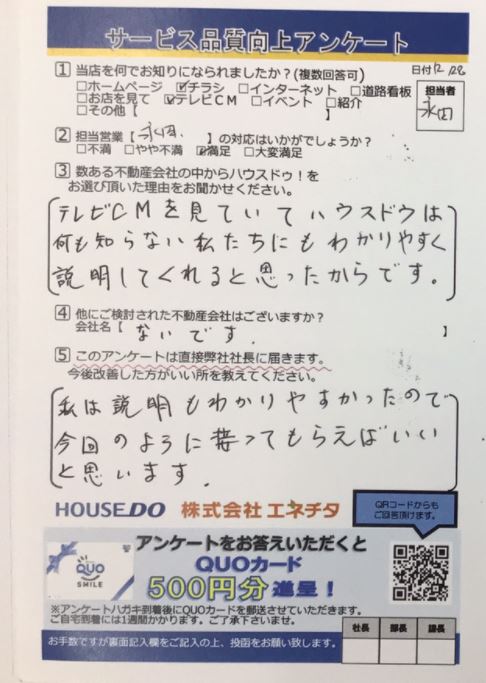 サービス品質向上アンケート
1 当店を何でお知りになられましたか?(複数回答可)
日付12/28
□ホームページ ☑チラシ □インターネット □道路看板
□お店を見て ☑テレビCM □イベント □紹介
□その他【 】
担当者
永田
2 担当営業【永田. 】の対応はいかがでしょうか?
□不満 □やや不満 ☑満足 □大変満足
3 数ある不動産会社の中からハウスドゥ!を
お選び頂いた理由をお聞かせください。
テレビCMを見ていてハウスドウは
何も知らない私たちにもわかりやすく
説明してくれると思ったからです。
4 他にご検討された不動産会社はございますか?
会社名【 ないです. 】
5 このアンケートは直接弊社社長に届きます。
今後改善した方がいい所を教えてください。
私は説明もわかりやすかったので
今回のように接ってもらえばいい
と思います.
HOUSEDO 株式会社 エネチタ
QRコードからも
ご回答頂けます。
QUO
SMILE
アンケートをお答えいただくと
QUOカード
500円分 進呈!
※アンケートハガキ到着後にQUOカードを郵送させていただきます。
ご自宅到着には1週間かかります。ご了承下さいませ。
お手数ですが裏面記入欄をご記入の上、投函をお願い致します。
社長 部長 課長